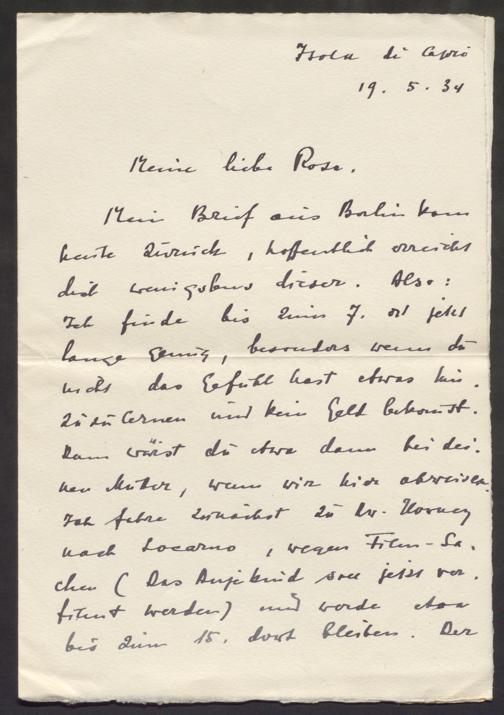 Isola di Capri
19. 5. 34
Meine liebe Rose.
Mein Brief aus Berlin kam
heute zurück, hoffentlich erreicht
dich wenigstens dieser. Also:
Ich finde bis zum 7. ist jetzt
lange genug, besonders wenn du
nicht das Gefühl hast etwas hin-
zuzulernen und kein Geld bekomst.
Dann wärst du etwa dann bei dei-
nen Mutter, wenn wir hier abreisen.
Ich fahre zunächst zu
nach Locarno, wegen Film-Sa-
chen (Das soll jetzt ver-
filmt werden) und werde etwa
bis zum 15. dort bleiben. Der